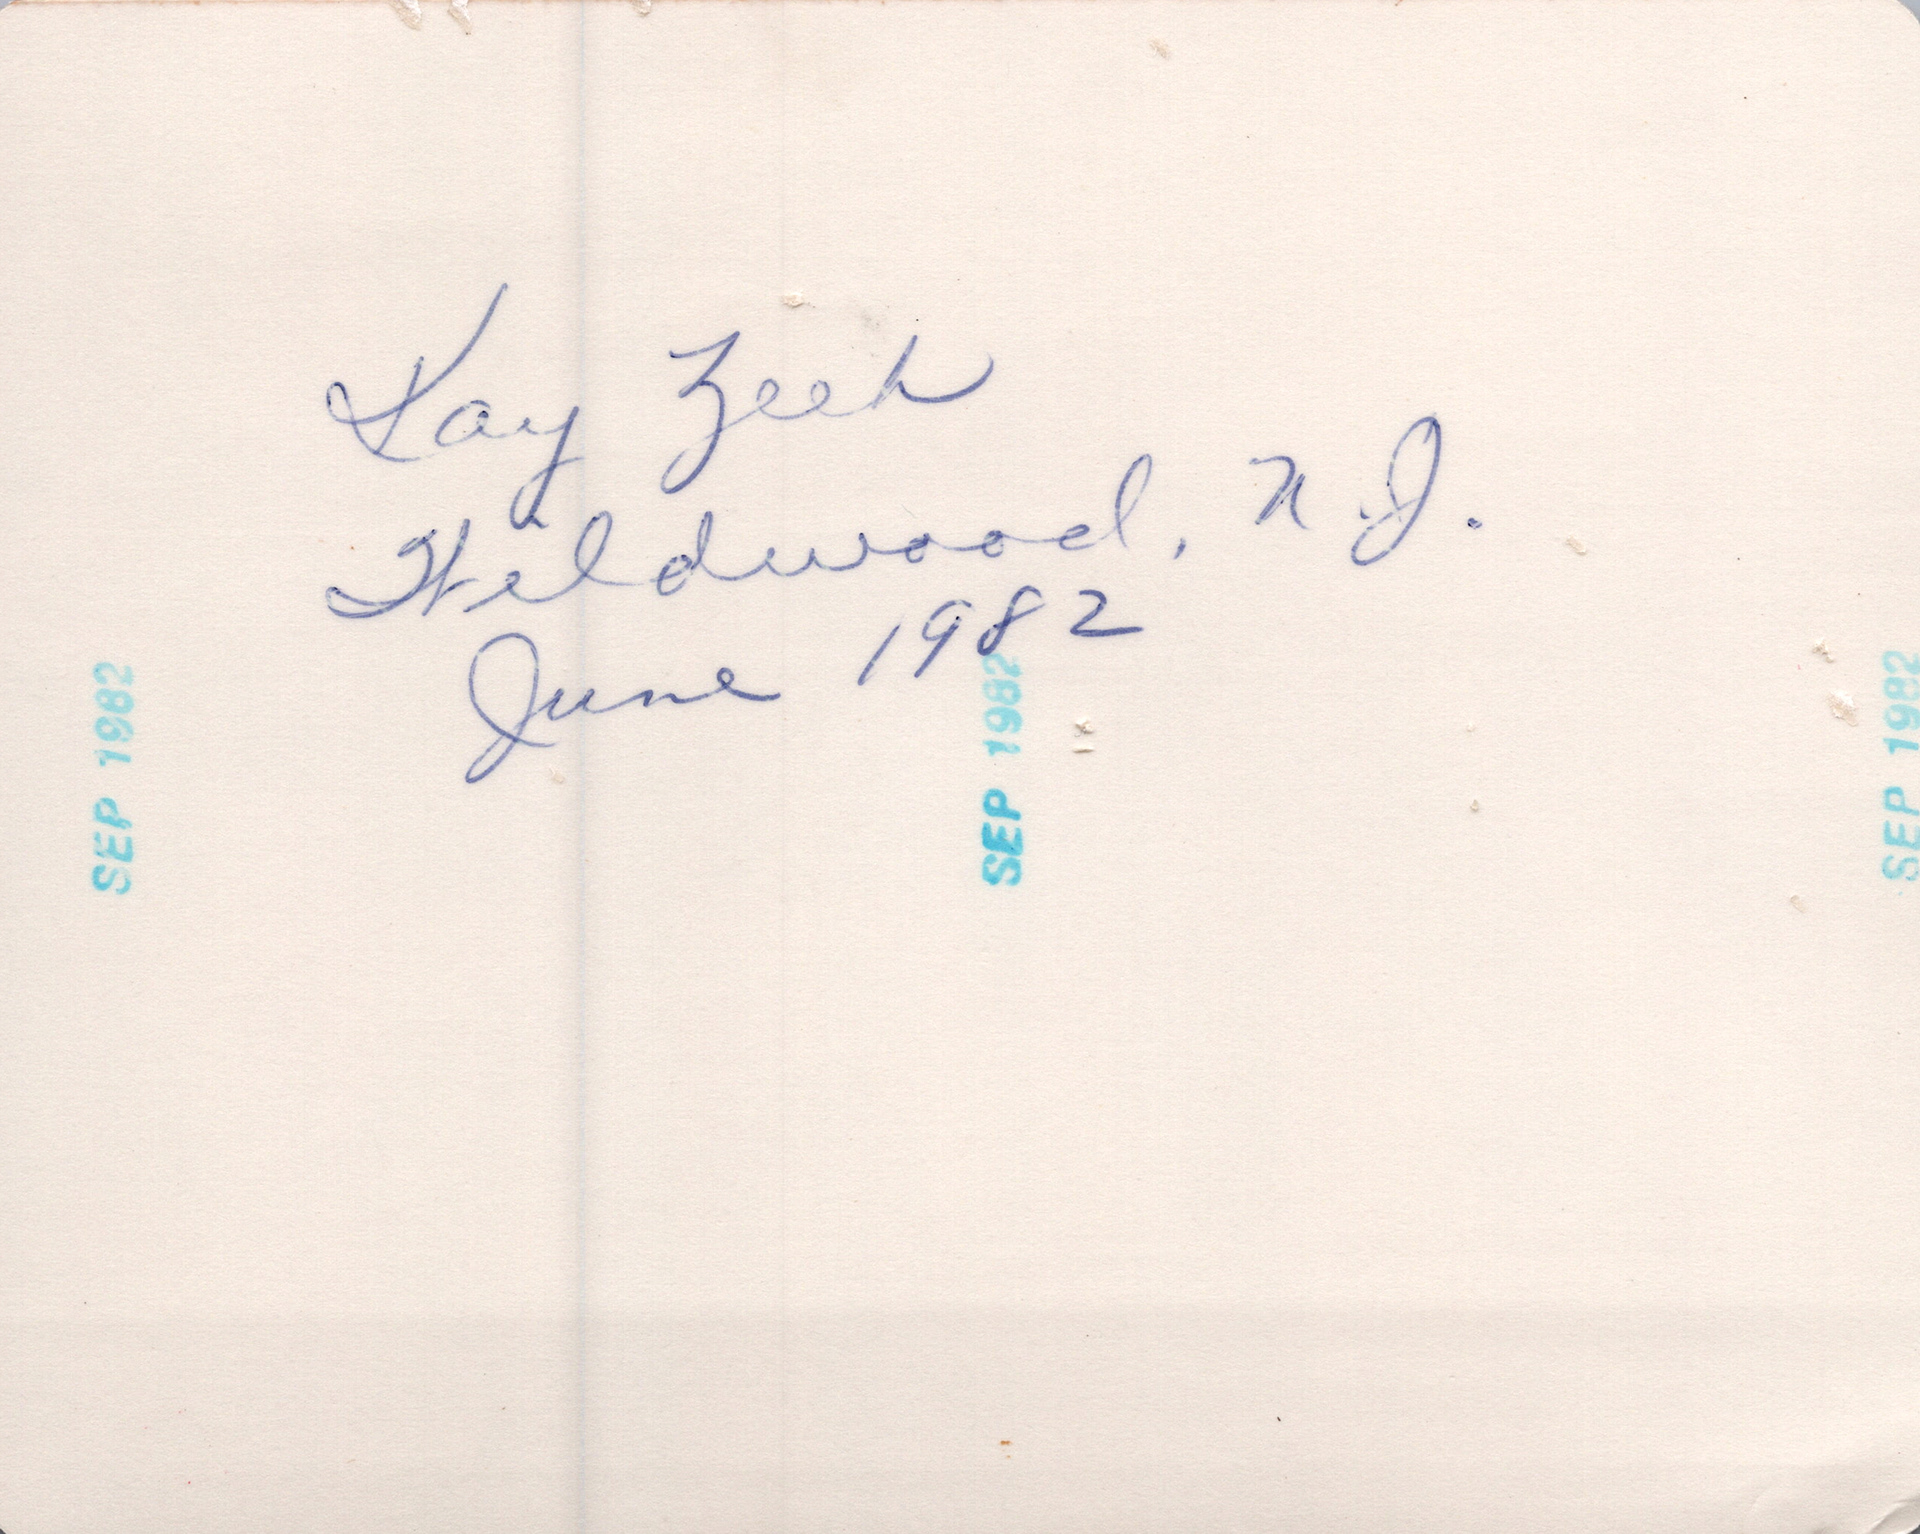 Kay Zeek
Wildwood, N.J.
June 1982
SEP 1982
SEP 1982
SEP 1982